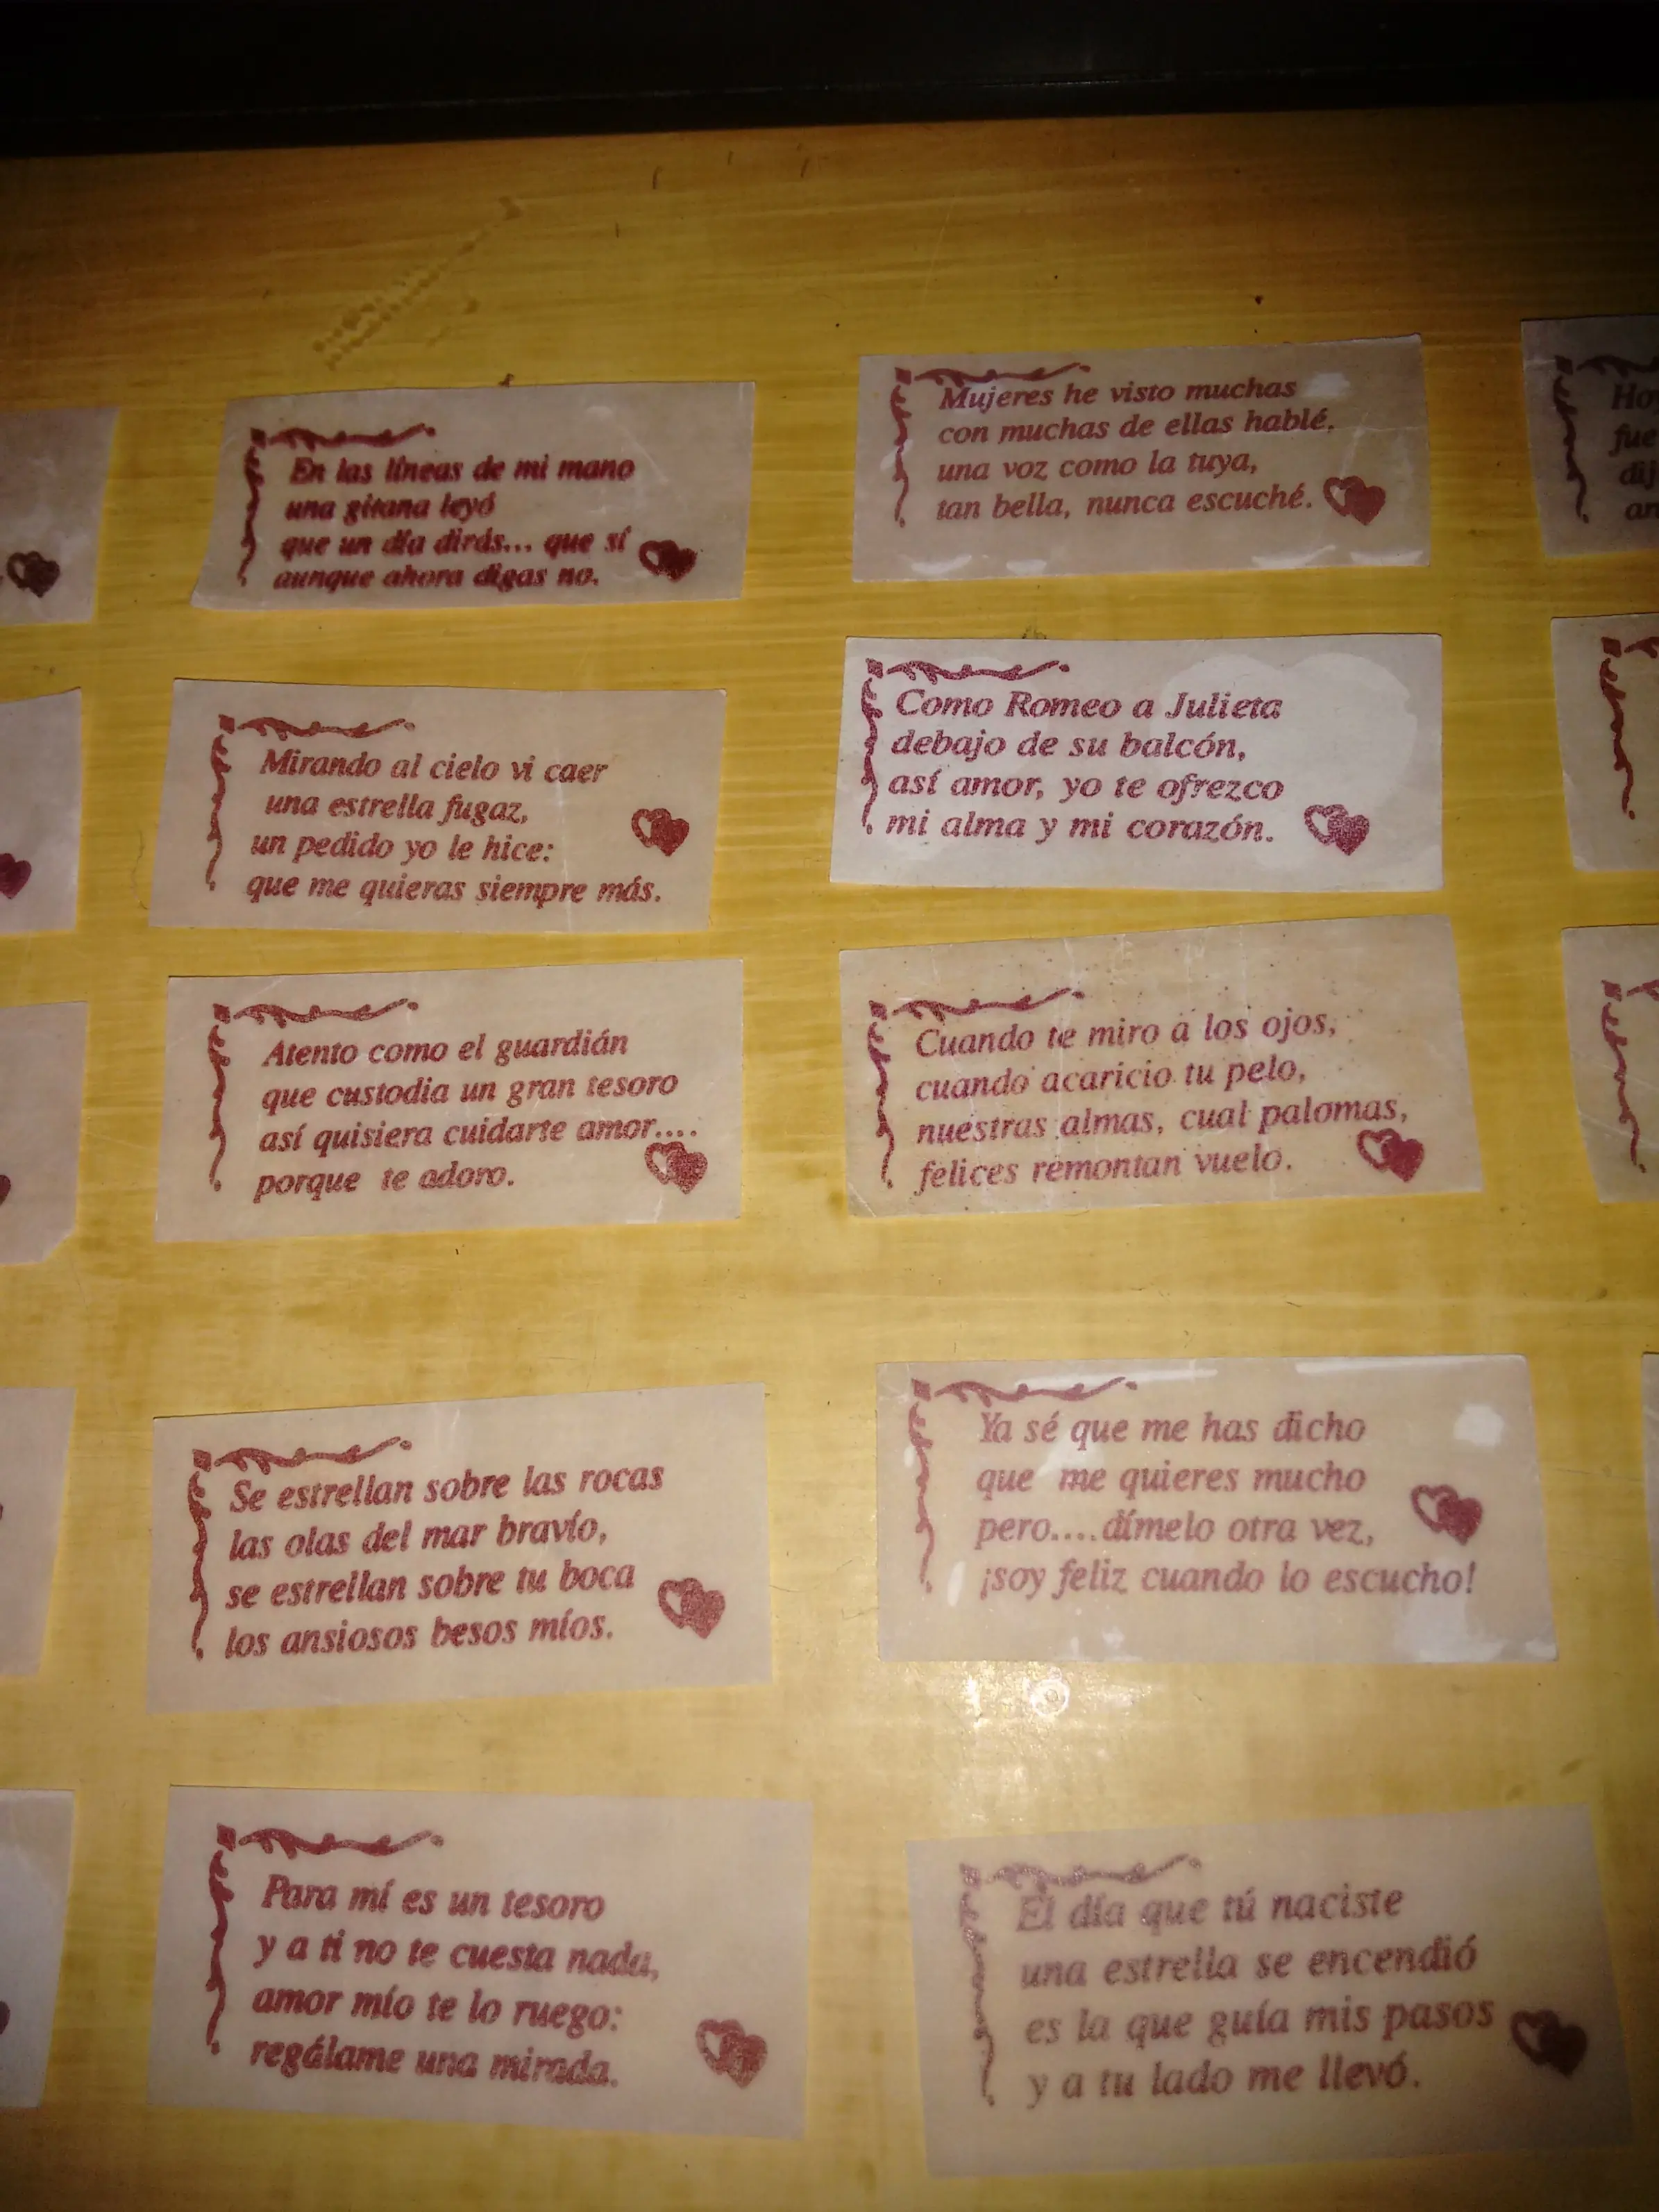 En las líneas de mi mano
una gitana leyó
que un día dirás... que sí
aunque ahora digas no.
Mujeres he visto muchas
con muchas de ellas hablé,
una voz como la tuya,
tan bella, nunca escuché.
Ho
fue
dij
an
Mirando al cielo vi caer
una estrella fugaz,
un pedido yo le hice:
que me quieras siempre más.
Como Romeo a Julieta
debajo de su balcón,
así amor, yo te ofrezco
mi alma y mi corazón.
Atento como el guardián
que custodia un gran tesoro
así quisiera cuidarte amor....
porque te adoro.
Cuando te miro a los ojos,
cuando acaricio tu pelo,
nuestras almas, cual palomas,
felices remontan vuelo.
Se estrellan sobre las rocas
las olas del mar bravío,
se estrellan sobre tu boca
los ansiosos besos míos.
Ya sé que me has dicho
que me quieres mucho
pero....dímelo otra vez,
¡soy feliz cuando lo escucho!
Para mí es un tesoro
y a ti no te cuesta nada,
amor mío te lo ruego:
regálame una mirada.
El día que tú naciste
una estrella se encendió
es la que guía mis pasos
y a tu lado me llevó.